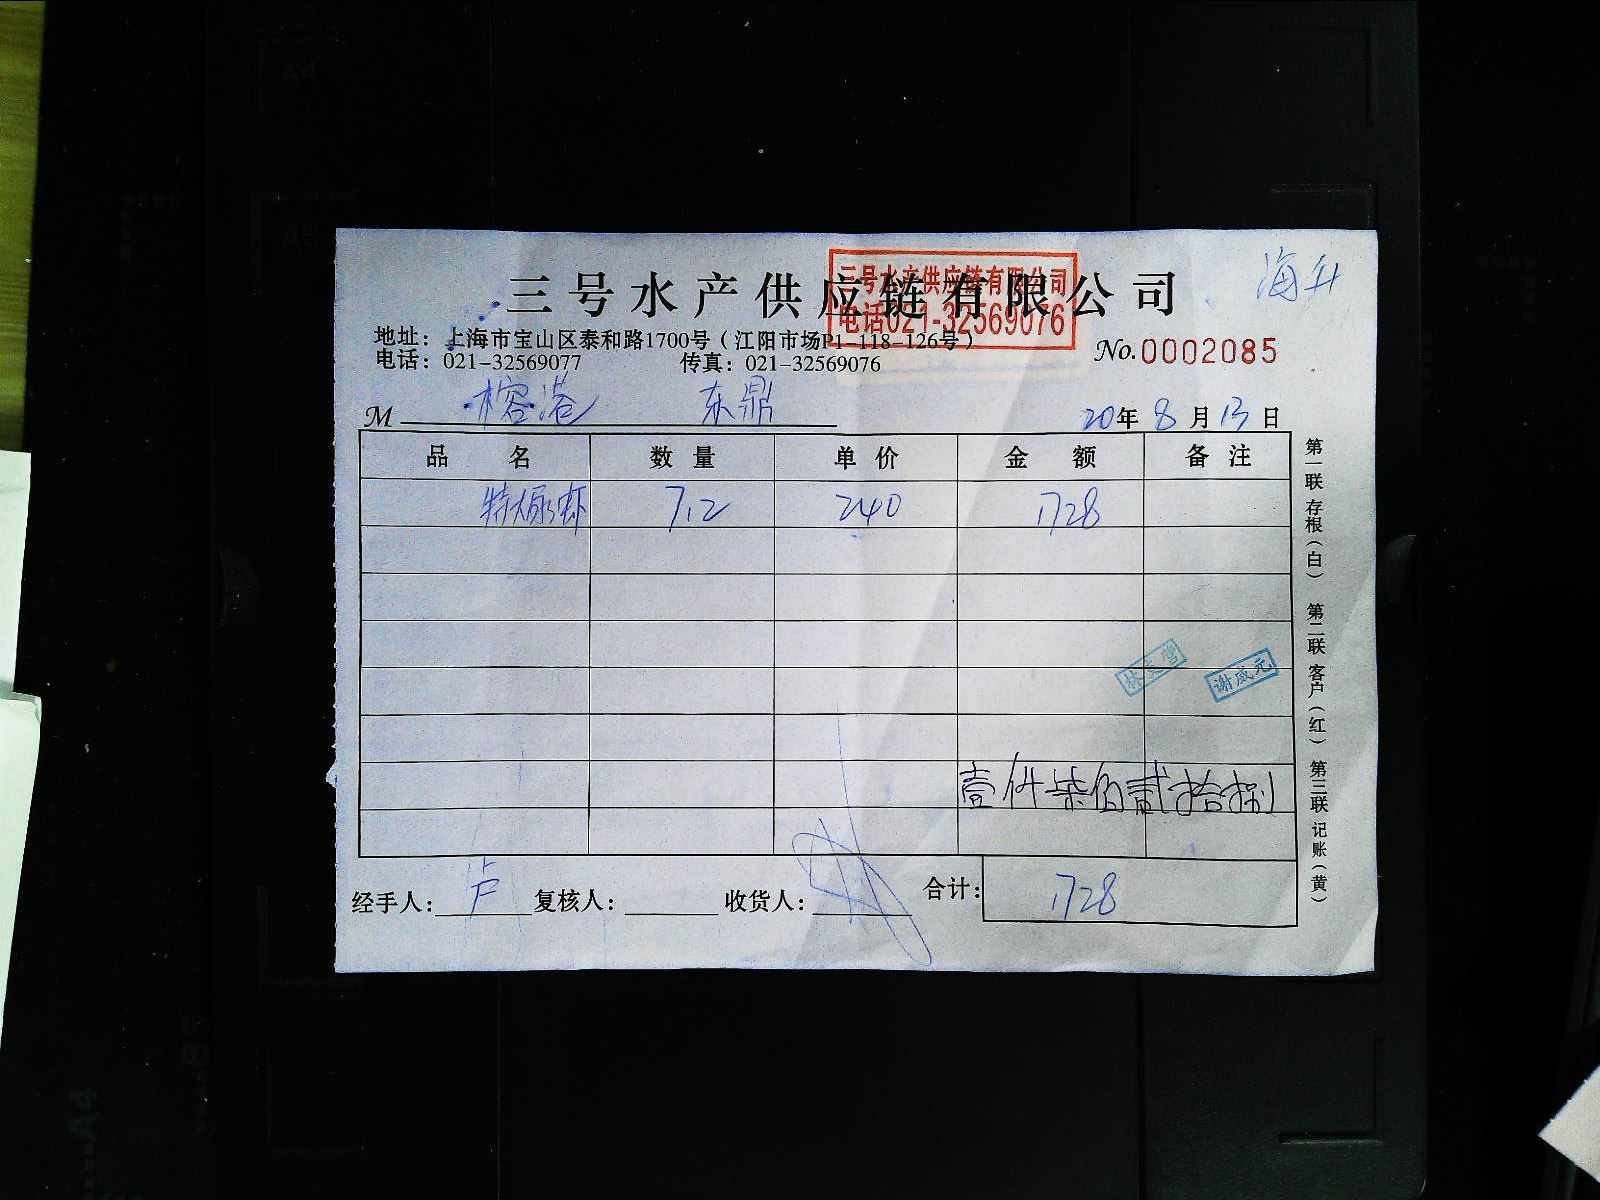 海升
三号水产供应链有限公司
三号水产供应链有限公司
电话021-32569076
地址：上海市宝山区泰和路1700号（江阳市场P1-118-126号）
电话：021-32569077 传真：021-32569076
No.0002085
M 榕港 东鼎
20年8月13日
品名 数量 单价 金额 备注
特大尿虾 7.2 240 1728
谢威元
壹仟柒佰贰拾捌
经手人：卢 复核人： 收货人： 合计：1728
第一联 存根（白） 第二联 客户（红） 第三联 记账（黄）
A4
A5
A4